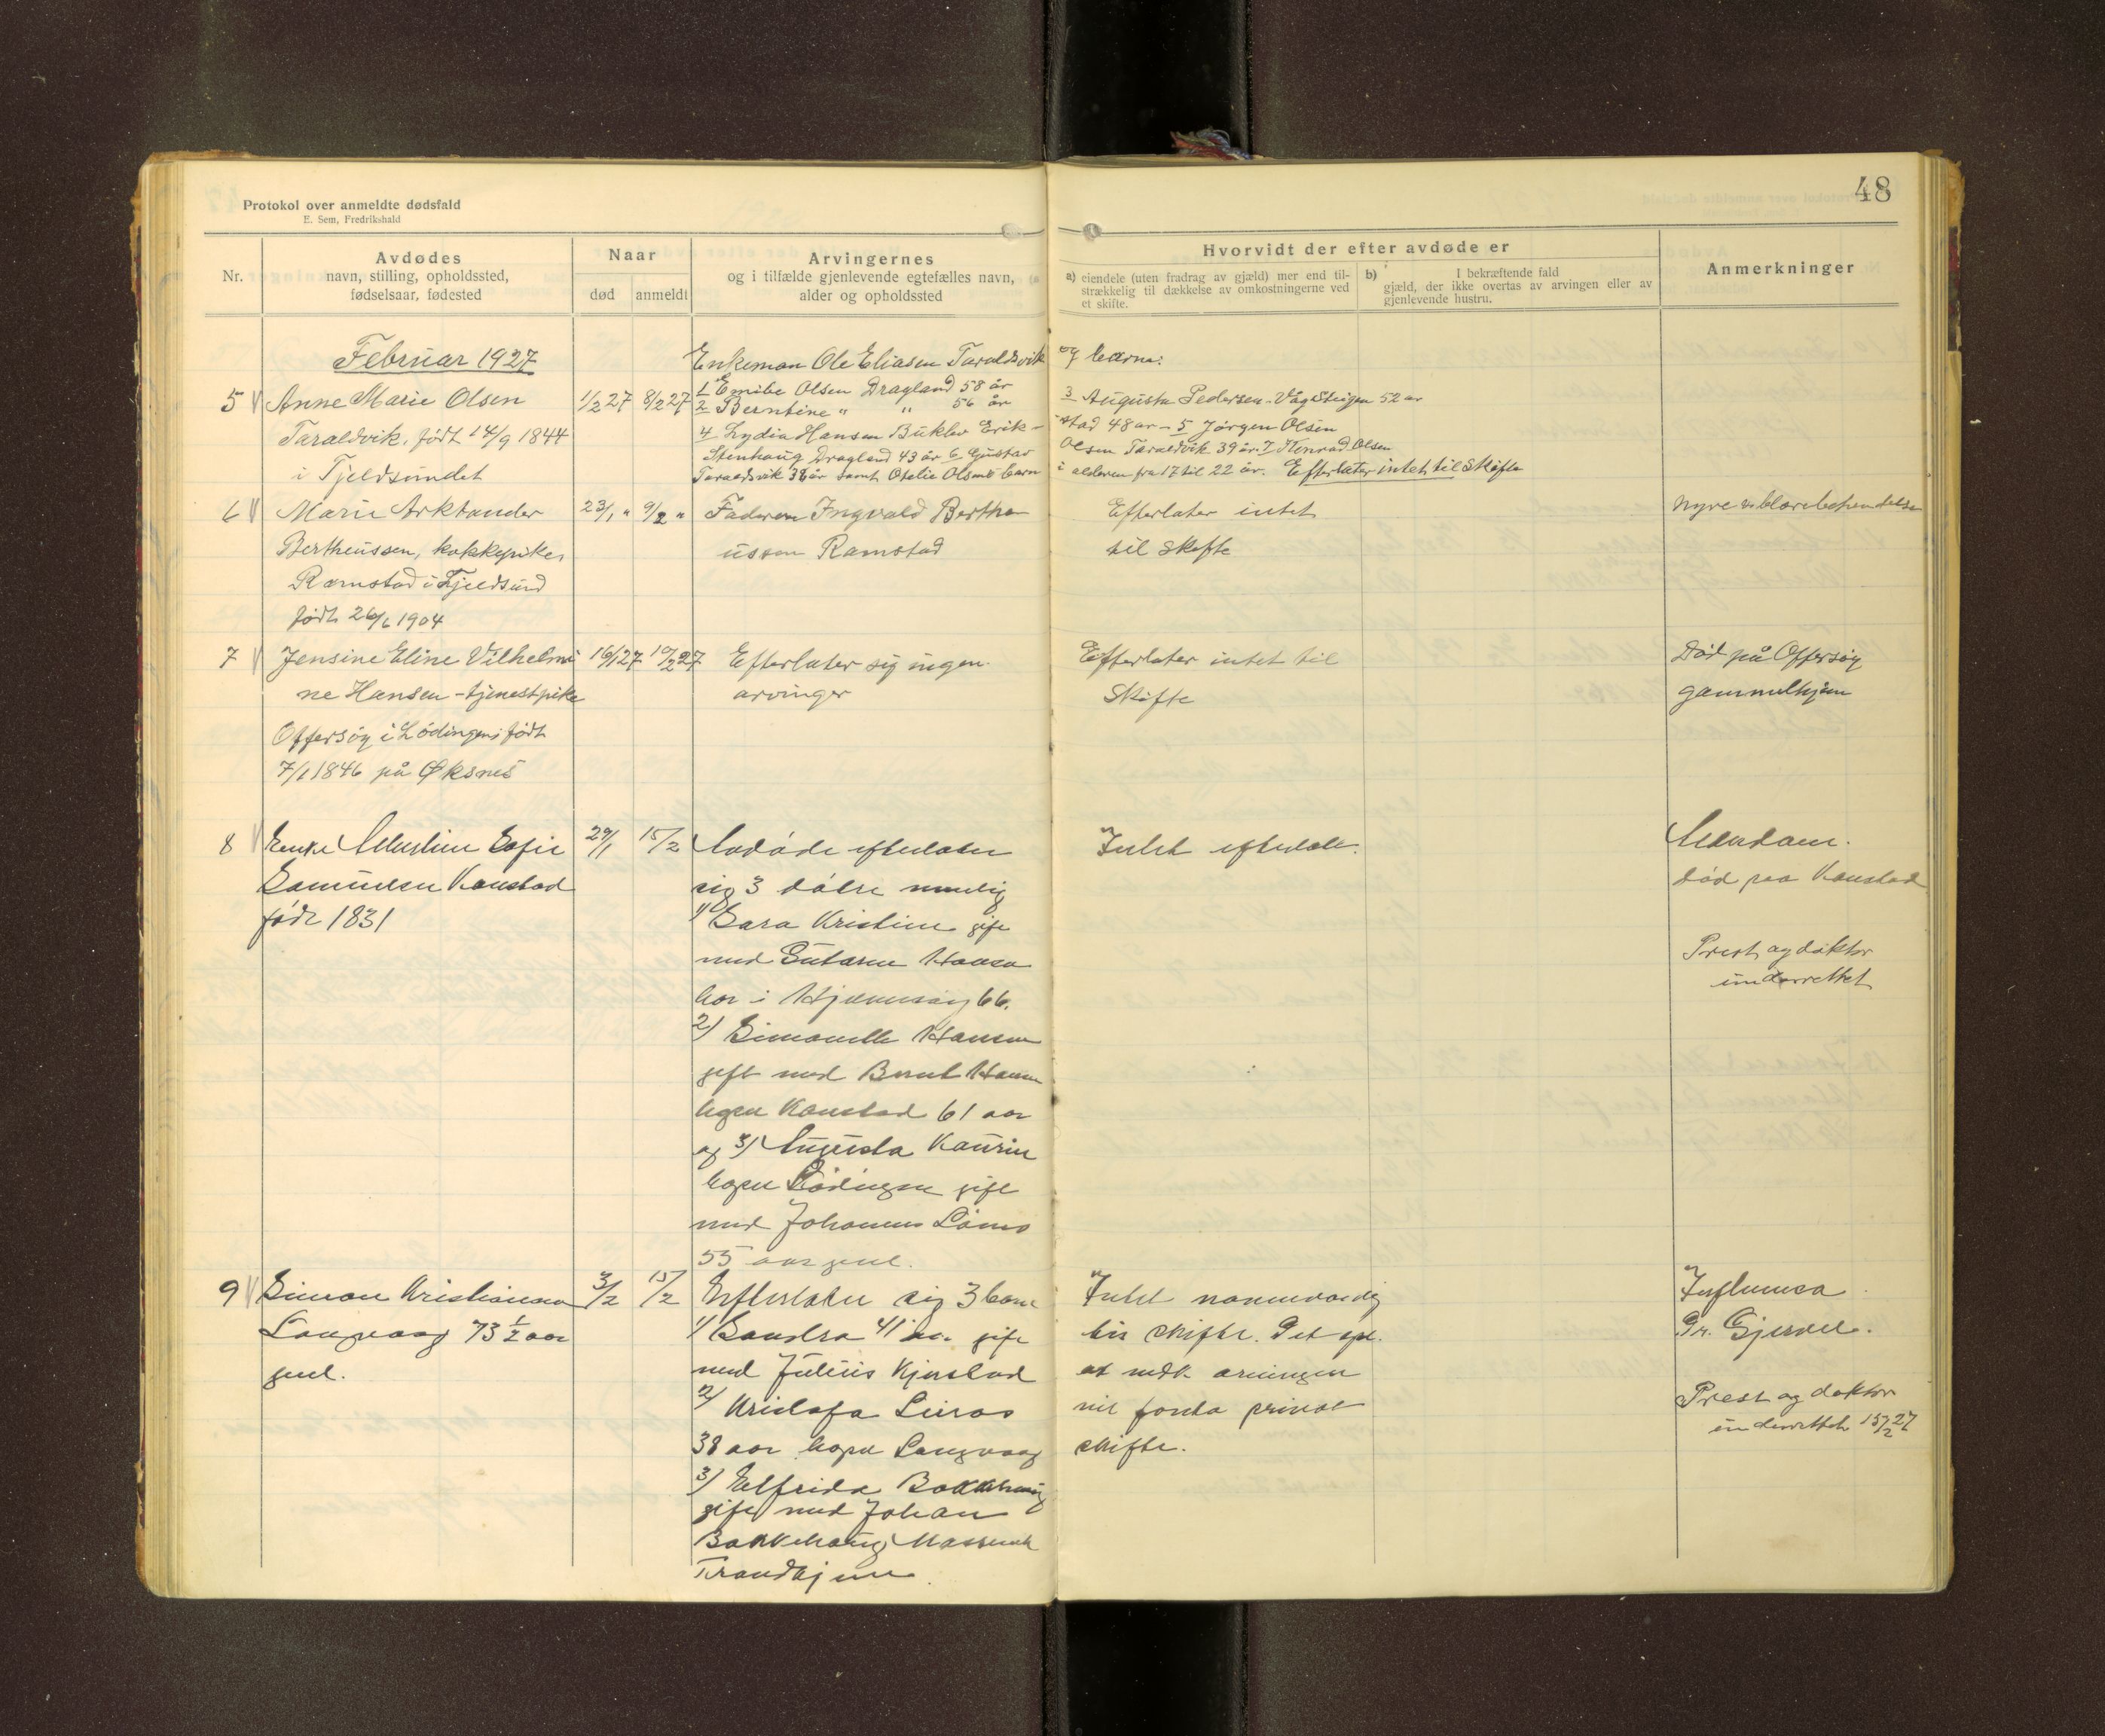 48
Protokol over anmeldte dødsfald
E. Sem, Fredrikshald
Nr.
Avdødes
navn, stilling, opholdssted,
fødselsaar, fødested
Naar
død
anmeldt
Arvingernes
og i tilfælde gjenlevende egtefælles navn,
alder og opholdssted
Hvorvidt der efter avdøde er
a) eiendele (uten fradrag av gjæld) mer end til-
strækkelig til dækkelse av omkostningerne ved
et skifte.
b) I bekræftende fald
gjæld, der ikke overtas av arvingen eller av
gjenlevende hustru.
Anmerkninger
Februar 1927
5
Anne Marie Olsen
Taraldvik, født 14/9 1844
i Tjeldsundet
1/2 27
8/2 27
Enkeman Ole Eliasen Taraldsvik og barna:
1 Emilie Olsen Dragland 58 år
2 Berntine " " 56 år
3 Augusta Pedersen - Våg Steigen 52 år
4 Lydia Hansen Erik-
stad 48 år - 5 Jørgen Olsen
Stenhaug Dragland 43 år 6 Gustav
Olsen Taraldvik 39 år. 7 Konrad Olsen
Taraldsvik 38 år samt Otelie Olsens barn
i alderen fra 17 til 22 år. Efterlater intet til skifte
6
Marie Arktander
Bertheussen, kokkepike,
Ramstad i Tjeldsund
født 26/6 1904
23/1 "
9/2 "
Faderen Ingvald Berthe
ussen Ramstad
Efterlater intet
til skifte
Nyre blærebetændelse
7
Jensine Eline Vilhelmi
ne Hansen - tjenestpike
Offersøy i Lødingen, født
7/1 1846 på Øksnes
16/1 27
10/2 27
Efterlater sig ingen
arvinger
Efterlater intet til
skifte
Død på Offersøy
gammelhjem
8
Enke Sofie
Samuelsen Kanstad
født 1831
29/1
15/2
Avdøde efterlater
sig 3 døtre nemlig
1) Sara Kristine gift
med Hansen
bor i 66.
2) Simonelle Hansen
gift med Bernt Hansen
bopæl Kanstad 61 aar
og 3) Augusta Kaurin
bopæl Lødingen gift
med Johannes
55 aar gml.
Intet efterlatt.
Alderdom.
død paa Kanstad
Prest og doktor
underrettet
9
Simon Kristiansen
Langvaag 73 1/2 aar
gml.
3/2
15/2
Efterlater sig 3 barn
1) Sandra 41 aar gift
med Julius Kjerstad
2) Kristofa
38 aar bopæl Langvaag
3) Elfrida Bakkehaug
gift med Johan
Bakkehaug
Trondhjem
Intet nævneværdig
til skifte. Det opl.
at arvingen
vil foreta privat
skifte.
Influensa
Dr. Gjervel.
Prest og doktor
underrettet 15/2 27